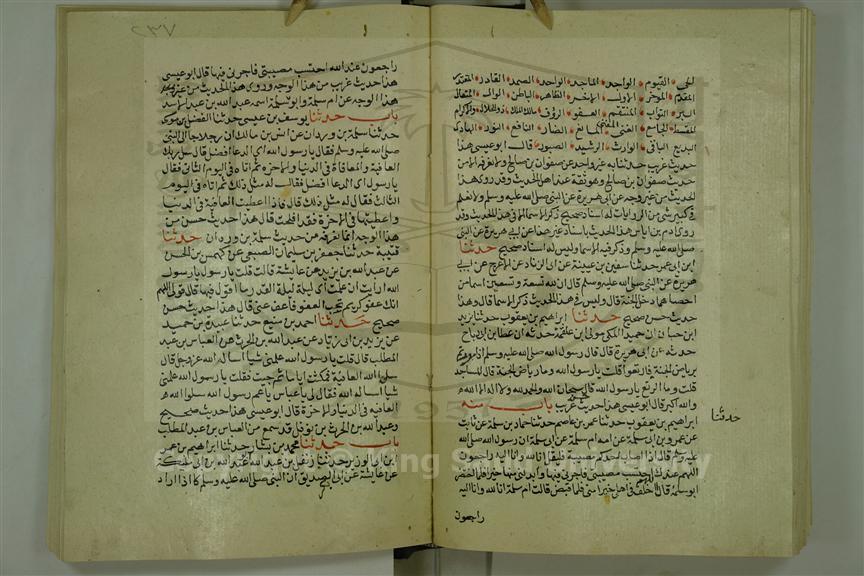 الحى القيوم الواجد الماجد الواحد الصمد القادر المقتدر
المقدم المؤخر الاول الاخر الظاهر الباطن الوالى المتعالى
البر التواب المنتقم العفو الرؤف مالك الملك ذو الجلال والاكرام
المقسط الجامع الغنى المغنى المانع الضار النافع النور الهادى
البديع الباقى الوارث الرشيد الصبور قال ابو عيسى هذا
حديث غريب حدثنا به غير واحد عن صفوان بن صالح ولا نعرفه الا من
حديث صفوان بن صالح وهو ثقة عند اهل الحديث وقد روى هذا
الحديث من غير وجه عن ابى هريرة عن النبى صلى الله عليه وسلم ولا نعلم
فى كبير شى من الروايات له اسناد صحيح ذكر الاسما الا فى هذا الحديث وقد
روى ادم بن ابى اياس هذا الحديث باسناد غير هذا عن ابى هريرة عن النبى
صلى الله عليه وسلم وذكر فيه الاسما وليس له اسناد صحيح حدثنا
ابن ابى عمر حدثنا سفين بن عيينة عن ابى الزناد عن الاعرج عن ابى
هريرة عن النبى صلى الله عليه وسلم قال ان لله تسعة وتسعين اسما من
احصاها دخل الجنة قال وليس فى هذا الحديث ذكر الاسما قال وهذا
حديث حسن صحيح حدثنا ابراهيم بن يعقوب حدثنا زيد
ابن حباب ان حميد المكى مولى ابن علقمة حدثه ان عطا بن ابى رباح
حدثه عن ابى هريرة قال قال رسول الله صلى الله عليه وسلم اذا مررتم
برياض الجنة فارتعوا قلت يا رسول الله وما رياض الجنة قال المساجد
قلت وما الرتع يا رسول الله قال سبحان الله والحمد لله ولا اله الا الله
والله اكبر قال ابو عيسى هذا حديث غريب باب منه
حدثنا
ابراهيم بن يعقوب حدثنا عمرو بن عاصم حدثنا حماد بن سلمة عن ثابت
عن عمر بن ابى سلمة عن امه ام سلمة عن ابى سلمة ان رسول الله صلى الله
عليه وسلم قال اذا اصاب احدكم مصيبة فليقل انا لله وانا اليه راجعون
اللهم عندك احتسب مصيبتى فاجرنى فيها وابدلنى منها خيرا فلما احتضر
ابو سلمة قال اللهم اخلف فى اهلى خيرا منى فلما قبض قالت ام سلمة انا لله وانا اليه
راجعون
٢٣٧
راجعون عند الله احتسب مصيبتى فاجرنى فيها قال ابو عيسى
هذا حديث غريب من هذا الوجه وروى هذا الحديث من غير
هذا الوجه عن ام سلمة وابو سلمة اسمه عبد الله بن عبد الاسد
باب حدثنا يوسف بن عيسى حدثنا الفضل بن موسى
حدثنا سلمة بن وردان عن انس بن مالك ان رجلا جا الى النبى
صلى الله عليه وسلم فقال يا رسول الله اى الدعا افضل قال سل ربك
العافية والمعافاة فى الدنيا والاخرة ثم اتاه فى اليوم الثانى فقال
يا رسول اى الدعا افضل فقال له مثل ذلك ثم اتاه فى اليوم
الثالث فقال له مثل ذلك قال فاذا اعطيت العافية فى الدنيا
واعطيتها فى الاخرة فقد افلحت قال هذا حديث حسن من
هذا الوجه انما نعرفه من حديث سلمة بن وردان حدثنا
قتيبة حدثنا جعفر بن سليمان الضبعى عن كهمس بن الحسن
عن عبد الله بن بريدة عن عايشة قالت قلت يا رسول يا رسول
الله ارايت ان علمت اى ليلة ليلة القدر ما اقول فيها قال قولى اللهم
انك عفو كريم تحب العفو فاعف عنى قال هذا حديث حسن
صحيح حدثنا احمد بن منيع حدثنا عبيدة بن حميد
عن يزيد بن ابى زياد عن عبد الله بن الحرث عن العباس بن عبد
المطلب قال قلت يا رسول الله علمنى شيا اساله الله عز وجل قال
سلوا الله العافية فمكثت اياما ثم جيت فقلت يا رسول الله علمنى
شيا اساله الله فقال لى يا عباس يا عم رسول الله سلوا الله
العافية فى الدنيا والاخرة قال ابو عيسى هذا حديث صحيح
وعبد الله بن الحرث بن نوفل قد سمع من العباس بن عبد المطلب
باب حدثنا محمد بن بشار حدثنا ابراهيم بن عمر
ابن ابى الوزير حدثنا زنفل بن عبد الله
عن عايشة عن ابى بكر الصديق ان النبى صلى الله عليه وسلم كان اذا اراد
Copyright © King Saud University
1957